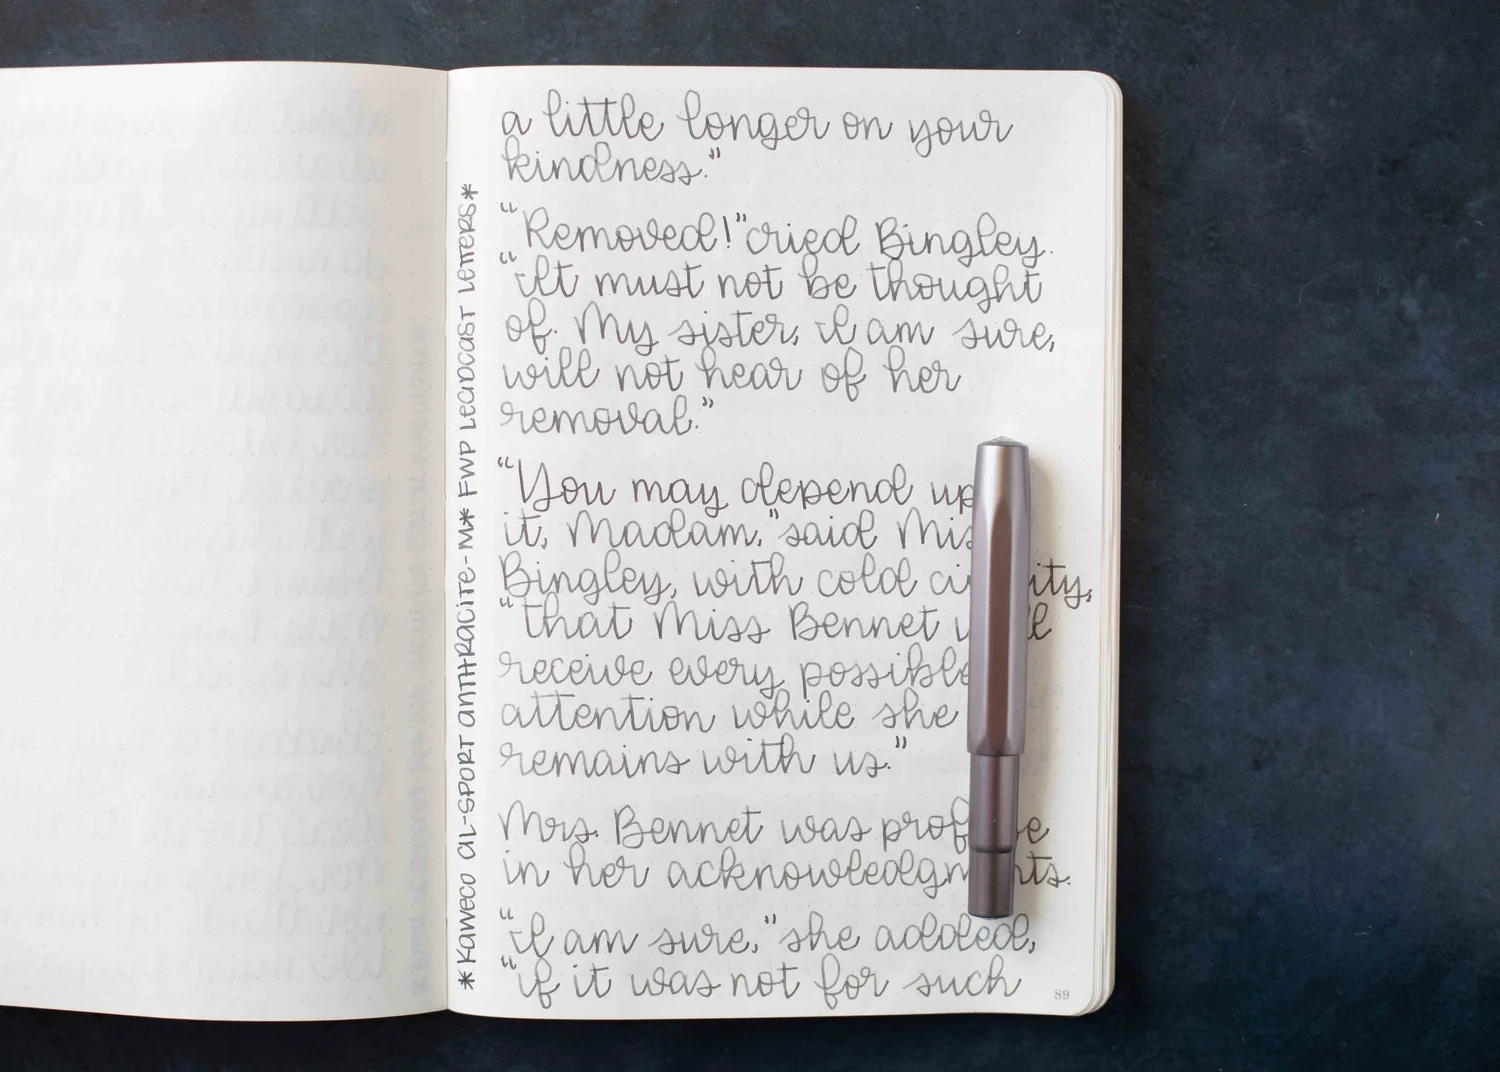 a little longer on your
kindness."
"Removed!" cried Bingley.
"It must not be thought
of. My sister, I am sure,
will not hear of her
removal."
"You may depend up
it, Madam," said Mis
Bingley, with cold ci ity,
"that Miss Bennet w ll
receive every possible
attention while she
remains with us."
Mrs. Bennet was prof e
in her acknowledgm nts.
"I am sure," she added,
"if it was not for such
89
*Kaweco AL-Sport Anthracite-M* FWP Leadcast Letters*